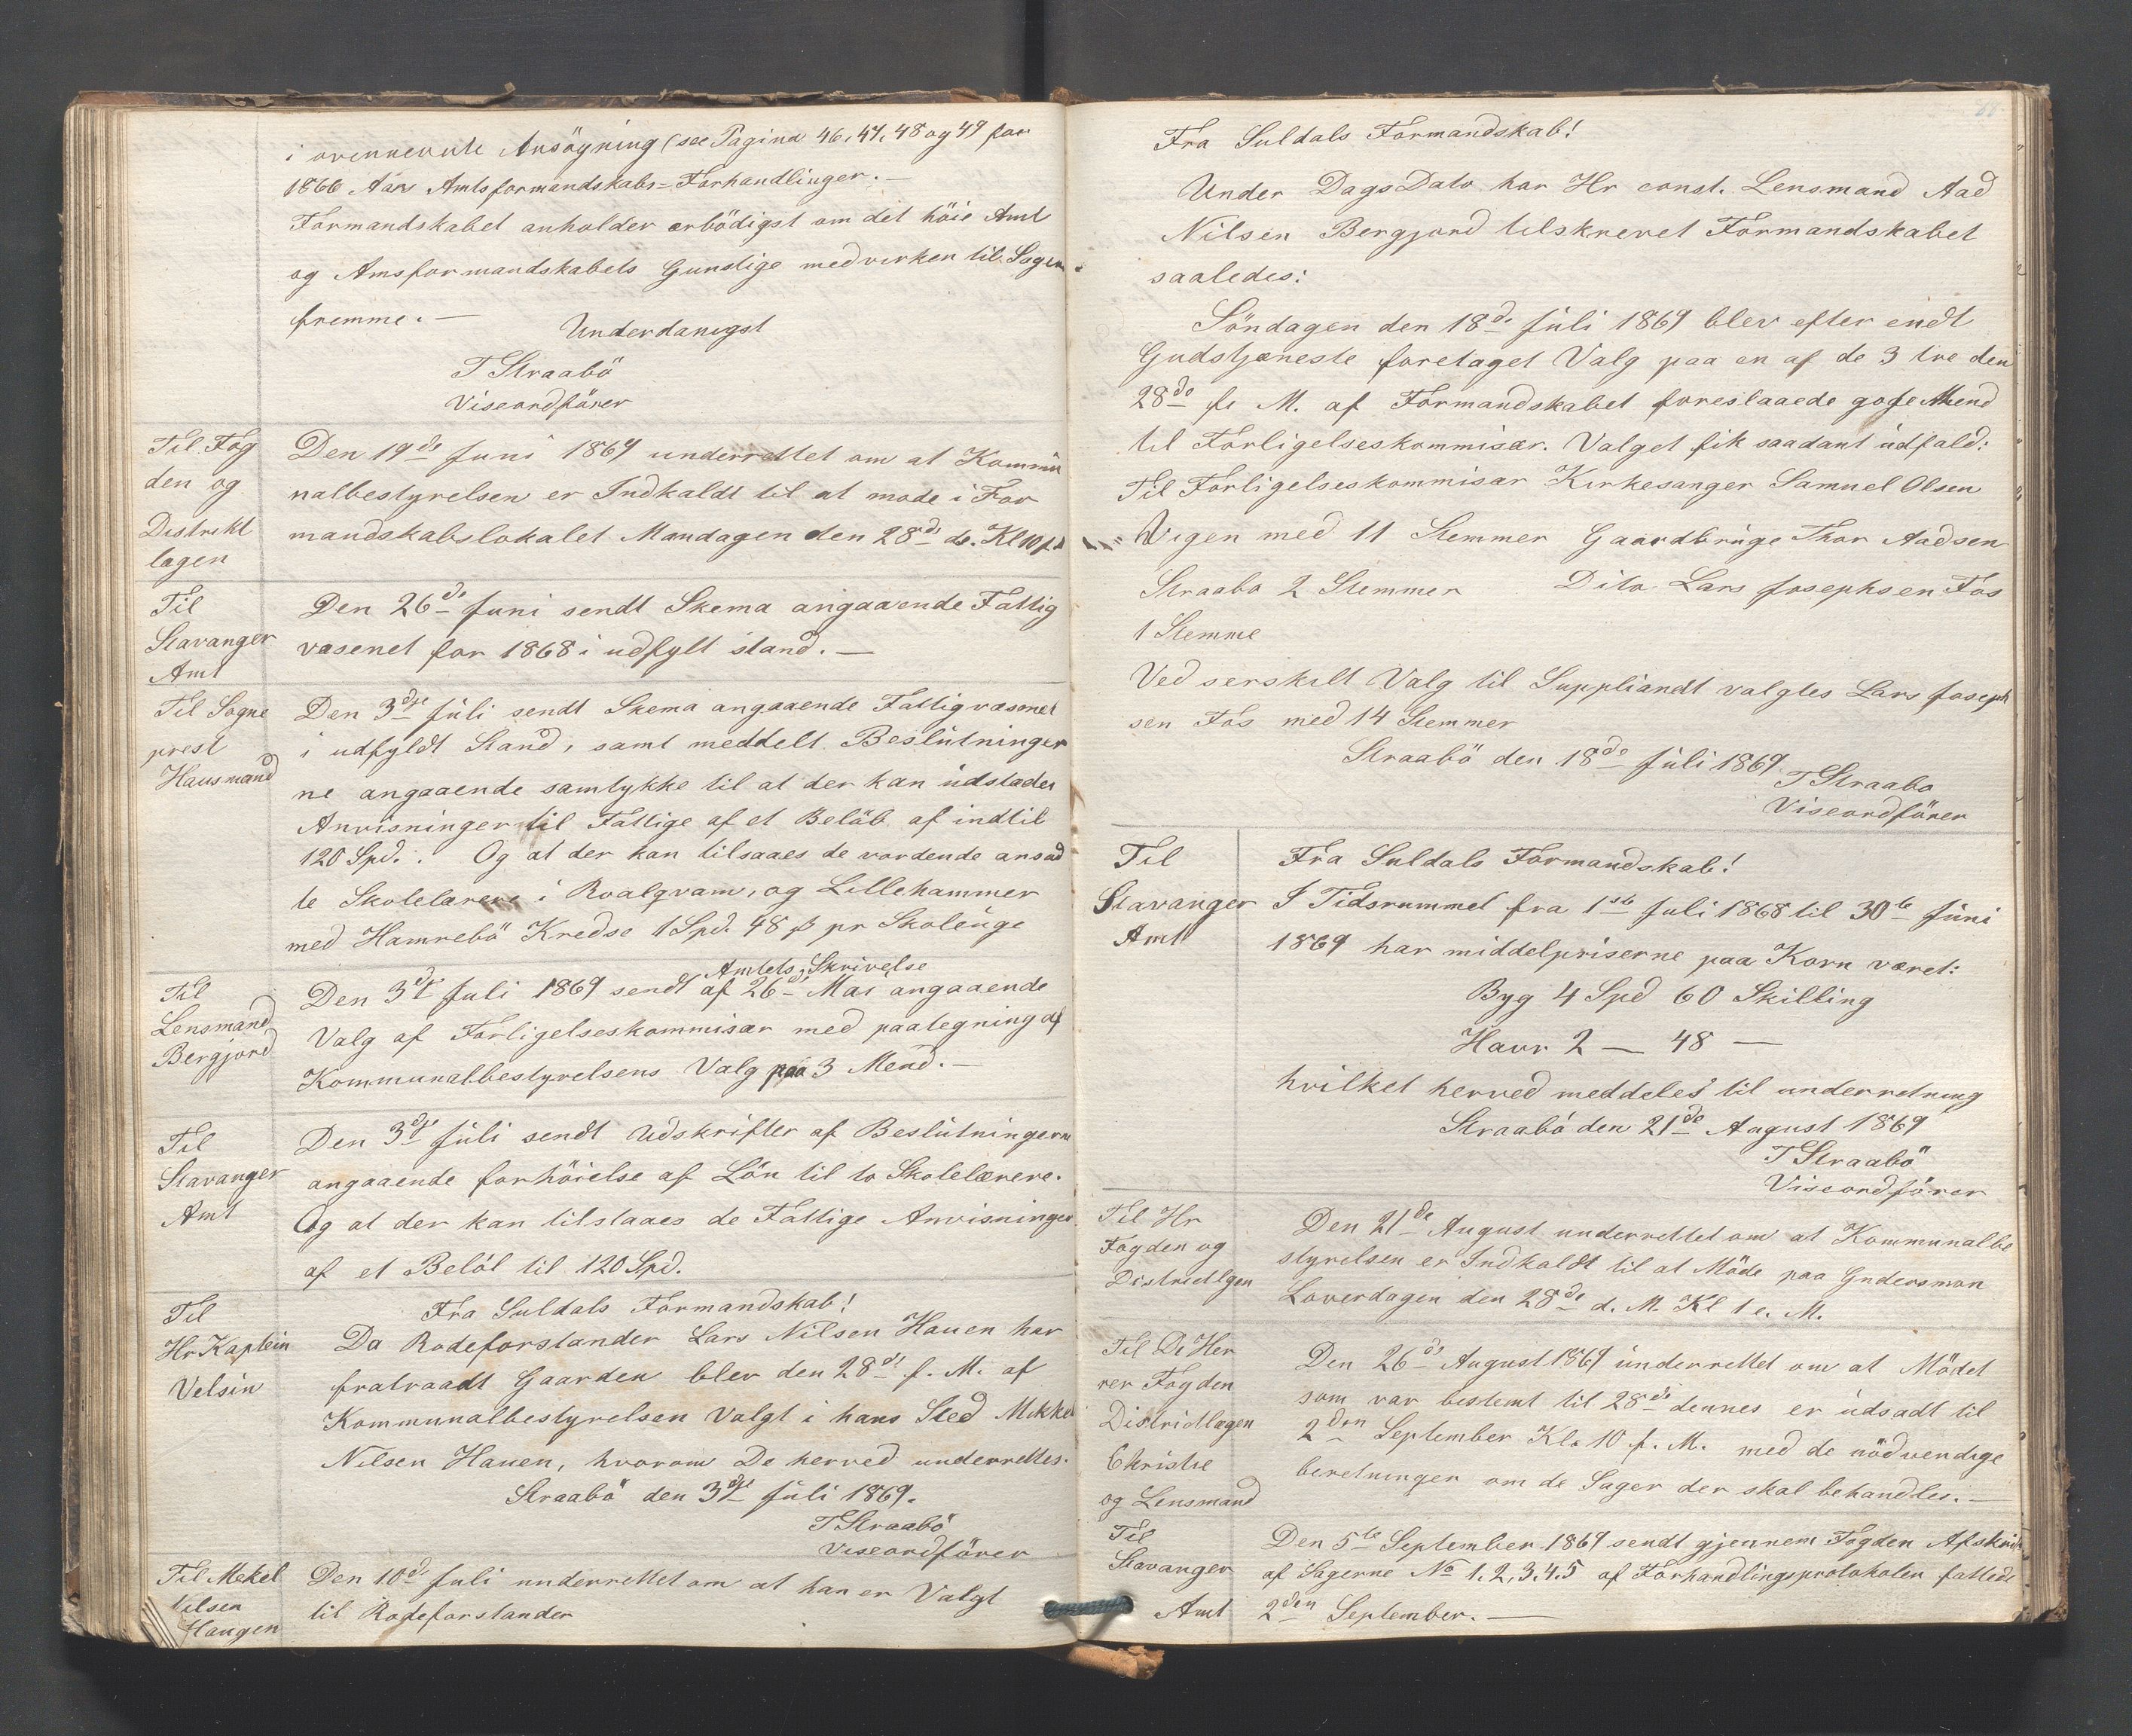 i ovennevnte Ansögning (see Pagina 46, 47, 48 og 49 for
1866 Aars Amtsformandskabs-Forhandlinger. —
Formandskabet anholder ærbödigst om det höie Amt
og Amsformandskabets Gunstige medvirken til Sagens
fremme. —
Underdanigst
T Straabö
Viseordförer
Til Fog
den og
Distrikt
lægen
Den 19de Juni 1869 underrettet om at Kommu
nalbestyrelsen er Indkaldt til at möde i For
mandskabslokalet Mandagen den 28de ds. Kl 10 f.
Til
Stavanger
Amt
Den 26de Juni sendt Skema angaaende Fattig
væsenet for 1868 i udfylt stand. —
Til Sogne
prest
Hausmand
Den 3dje Juli sendt Skema angaaende Fattigvæsenet
i udfyldt Stand, samt meddelt Beslutninger
ne angaaende samtykke til at der kan udstædes
Anvisninger til Fattige af et Belöb af indtil
120 Spd. . Og at der kan tilsaaes de vordende ansad
te Skolelærere i Roalqvam, og Lillehammer
med Hamrebö Kredse 1 Spd. 48 ß pr Skoleuge
Til
Lensmand
Bergjord
Amtets Skrivelse
Den 3dje Juli 1869 sendt af 26de Mai angaaende
Valg af Forligelseskommisær med paategning af
Kommunalbestyrelsens Valg paa 3 Mend. —
Til
Stavanger
Amt
Den 3dje Juli sendt Udskrifter af Beslutningerne
angaaende forhöielse af Lön til to Skolelærere.
Og at der kan tilstaaes de Fattige Anvisninger
af et Belöb til 120 Spd.
Til
Hr Kaptein
Velsin
Fra Suldals Formandskab!
Da Rodeforstander Lars Nilsen Hauen har
fratraadt Gaarden blev den 28de f. M. af
Kommunalbestyrelsen Valgt i hans Sted Mikkel
Nilsen Hauen, hvorom De herved underrettes.
Straabö den 3dje Juli 1869.
T Straabö
Viseordförer
Til Mekel
Nilsen
Haugen
Den 10de Juli underrettet om at han er Valgt
til Rodeforstander
Fra Suldals Formandskab!
Under Dags Dato har Hr const. Lensmand Aad
Nilsen Bergjord tilskrevet Formandskabet
saaledes:
Söndagen den 18de Juli 1869 blev efter endt
Gudstjæneste foretaget Valg paa en af de 3 tre den
28de f. M. af Formandskabet foreslaaede gode Mend
til Forligelseskommisær. Valget fik saadant udfald:
Til Forligelseskommisær Kirkesanger Samuel Olsen
Vigen med 11 Stemmer Gaardbruge Thor Aadsen
Straabö 2 Stemmer Dito Lars Josephsen Fos
1 Stemme
Ved serskilt Valg til Suppliandt valgtes Lars Joseph
sen Fos med 14 Stemmer
Straabö den 18de Juli 1869
T Straabö
Viseordförer
Til
Stavanger
Amt
Fra Suldals Formandskab!
I Tidsrummet fra 1ste Juli 1868 til 30te Juni
1869 har middelpriserne paa Korn været:
Byg 4 Spd 60 Skilling
Havr 2 — 48 —
hvilket herved meddeles til underretning
Straabö den 21de August 1869
T Straabö
Viseordförer
Til Hr
Fogden og
Distriktlgen
Den 21de August underrettet om at Kommunalbe
styrelsen er Indkaldt til at Möde paa
Loverdagen den 28de d. M. Kl 1 e. M.
Til De Her
rer Fogden
Distriktlægen
Christie
og Lensmand
Den 26de August 1869 underrettet om at Mödet
som var bestemt til 28de dennes er udsadt til
2den September Kl. 10 f. M. med de nödvendige
beretninger om de Sager der skal behandles. —
Til
Stavanger
Amt
Den 5te September 1869 sendt gjennem Fogden Afskrift
af Sagerne No 1, 2, 3, 4, 5 af Forhandlingsprotokolen fattede
2den September. —